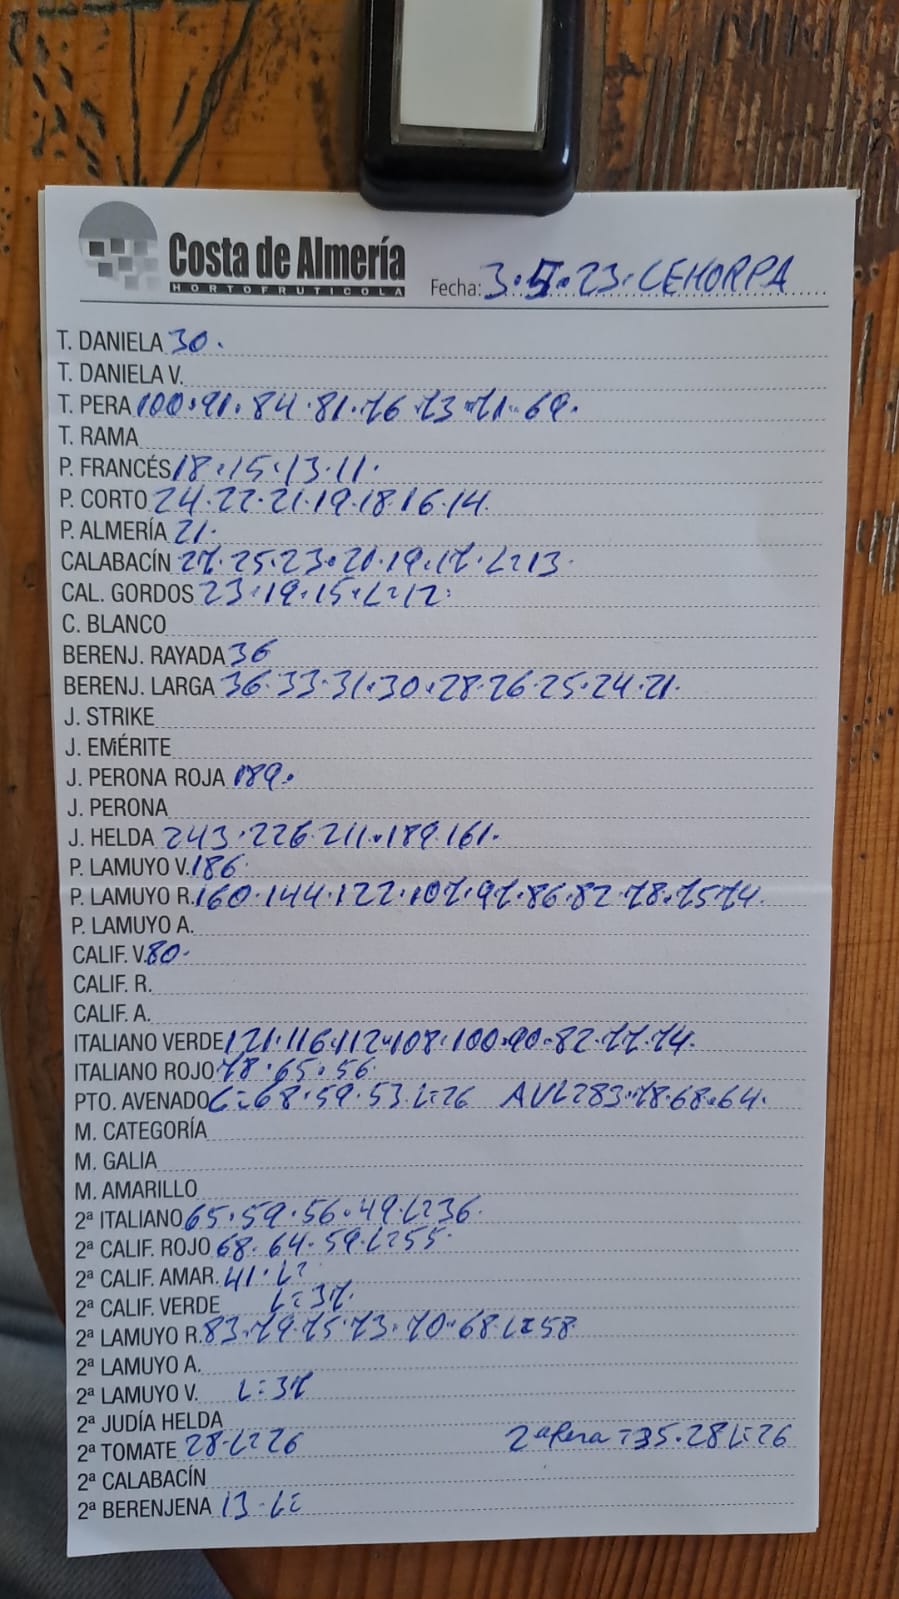 Costa de Almería
HORTOFRUTICOLA
Fecha: 3.5.23. CEHORPA
T. DANIELA 30.
T. DANIELA V.
T. PERA 100.91.84.81.76.73.71.69.
T. RAMA
P. FRANCÉS 18.15.13.11.
P. CORTO 24.22.21.19.18.16.14.
P. ALMERÍA 21.
CALABACÍN 27.25.23.20.19.17.L=13.
CAL. GORDOS 23.19.15.L=12.
C. BLANCO
BERENJ. RAYADA 36
BERENJ. LARGA 36.33.31.30.28.26.25.24.21.
J. STRIKE
J. EMÉRITE
J. PERONA ROJA 189.
J. PERONA
J. HELDA 243.226.211.189.161.
P. LAMUYO V. 186.
P. LAMUYO R. 160.144.122.107.97.86.82.78.75.74.
P. LAMUYO A.
CALIF. V. 80.
CALIF. R.
CALIF. A.
ITALIANO VERDE 121.116.112.108.100.90.82.77.74.
ITALIANO ROJO 78.65.56.
PTO. AVENADO C=68.59.53.L=26 AVL=83.78.68.64.
M. CATEGORÍA
M. GALIA
M. AMARILLO
2ª ITALIANO 65.59.56.49.L=36.
2ª CALIF. ROJO 68.64.59.L=55.
2ª CALIF. AMAR. 41.L=
2ª CALIF. VERDE L=37.
2ª LAMUYO R. 83.79.75.73.70.68.L=58
2ª LAMUYO A.
2ª LAMUYO V. L=37
2ª JUDÍA HELDA
2ª TOMATE 28.L=26 2ª Pera=35.28 L=26
2ª CALABACÍN
2ª BERENJENA 13.L=